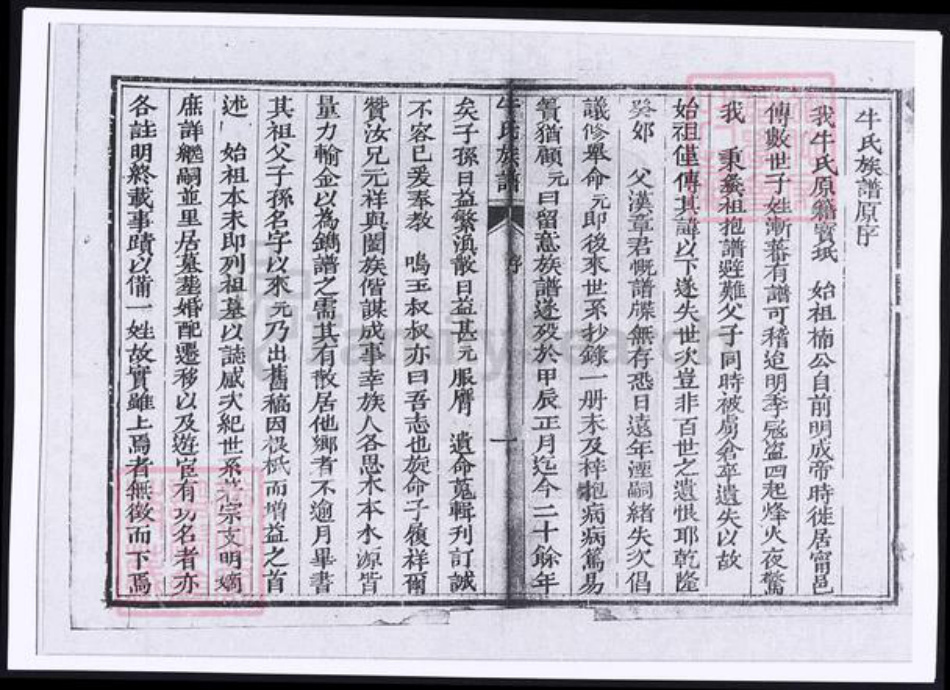 牛氏族譜原序
我牛氏原籍寳坻 始祖楠公自前明成帝時徙居甯邑
傳數世子姓漸蕃有譜可稽迨明季寇盗四起烽火夜驚
我 秉彝祖抱譜避難父子同時被虜倉卒遺失以故
始祖僅傳其諱以下遂失世次豈非百世之遺恨耶乾隆
癸郊 父漢章君慨譜牒無存恐日遠年湮嗣緒失次倡
議修舉命元即後來世系抄錄一册未及梓抱病病篤易
簀猶顧元曰留意族譜遂殁於甲辰正月迄今二十餘年
牛氏族譜 序 一
矣子孫日益繁滋散日益甚元服膺 遺命蒐輯刊訂誠
不容已爰奉教 鳴玉叔叔亦曰吾志也旋命子履祥爾
贊汝兄元祥與闔族偕謀成事幸族人各思木本水源皆
量力輸金以為鐫譜之需其有散居他鄉者不逾月畢書
其祖父子孫名字以來元乃出舊稿因根柢而增益之首
述 始祖本末即列祖墓以誌感次紀世系 宗支明嫡
庶詳繼嗣並里居墓塋婚配遷移以及遊宦有功名者亦
各註明終載事蹟以備一姓故實雖上焉者無徵而下焉